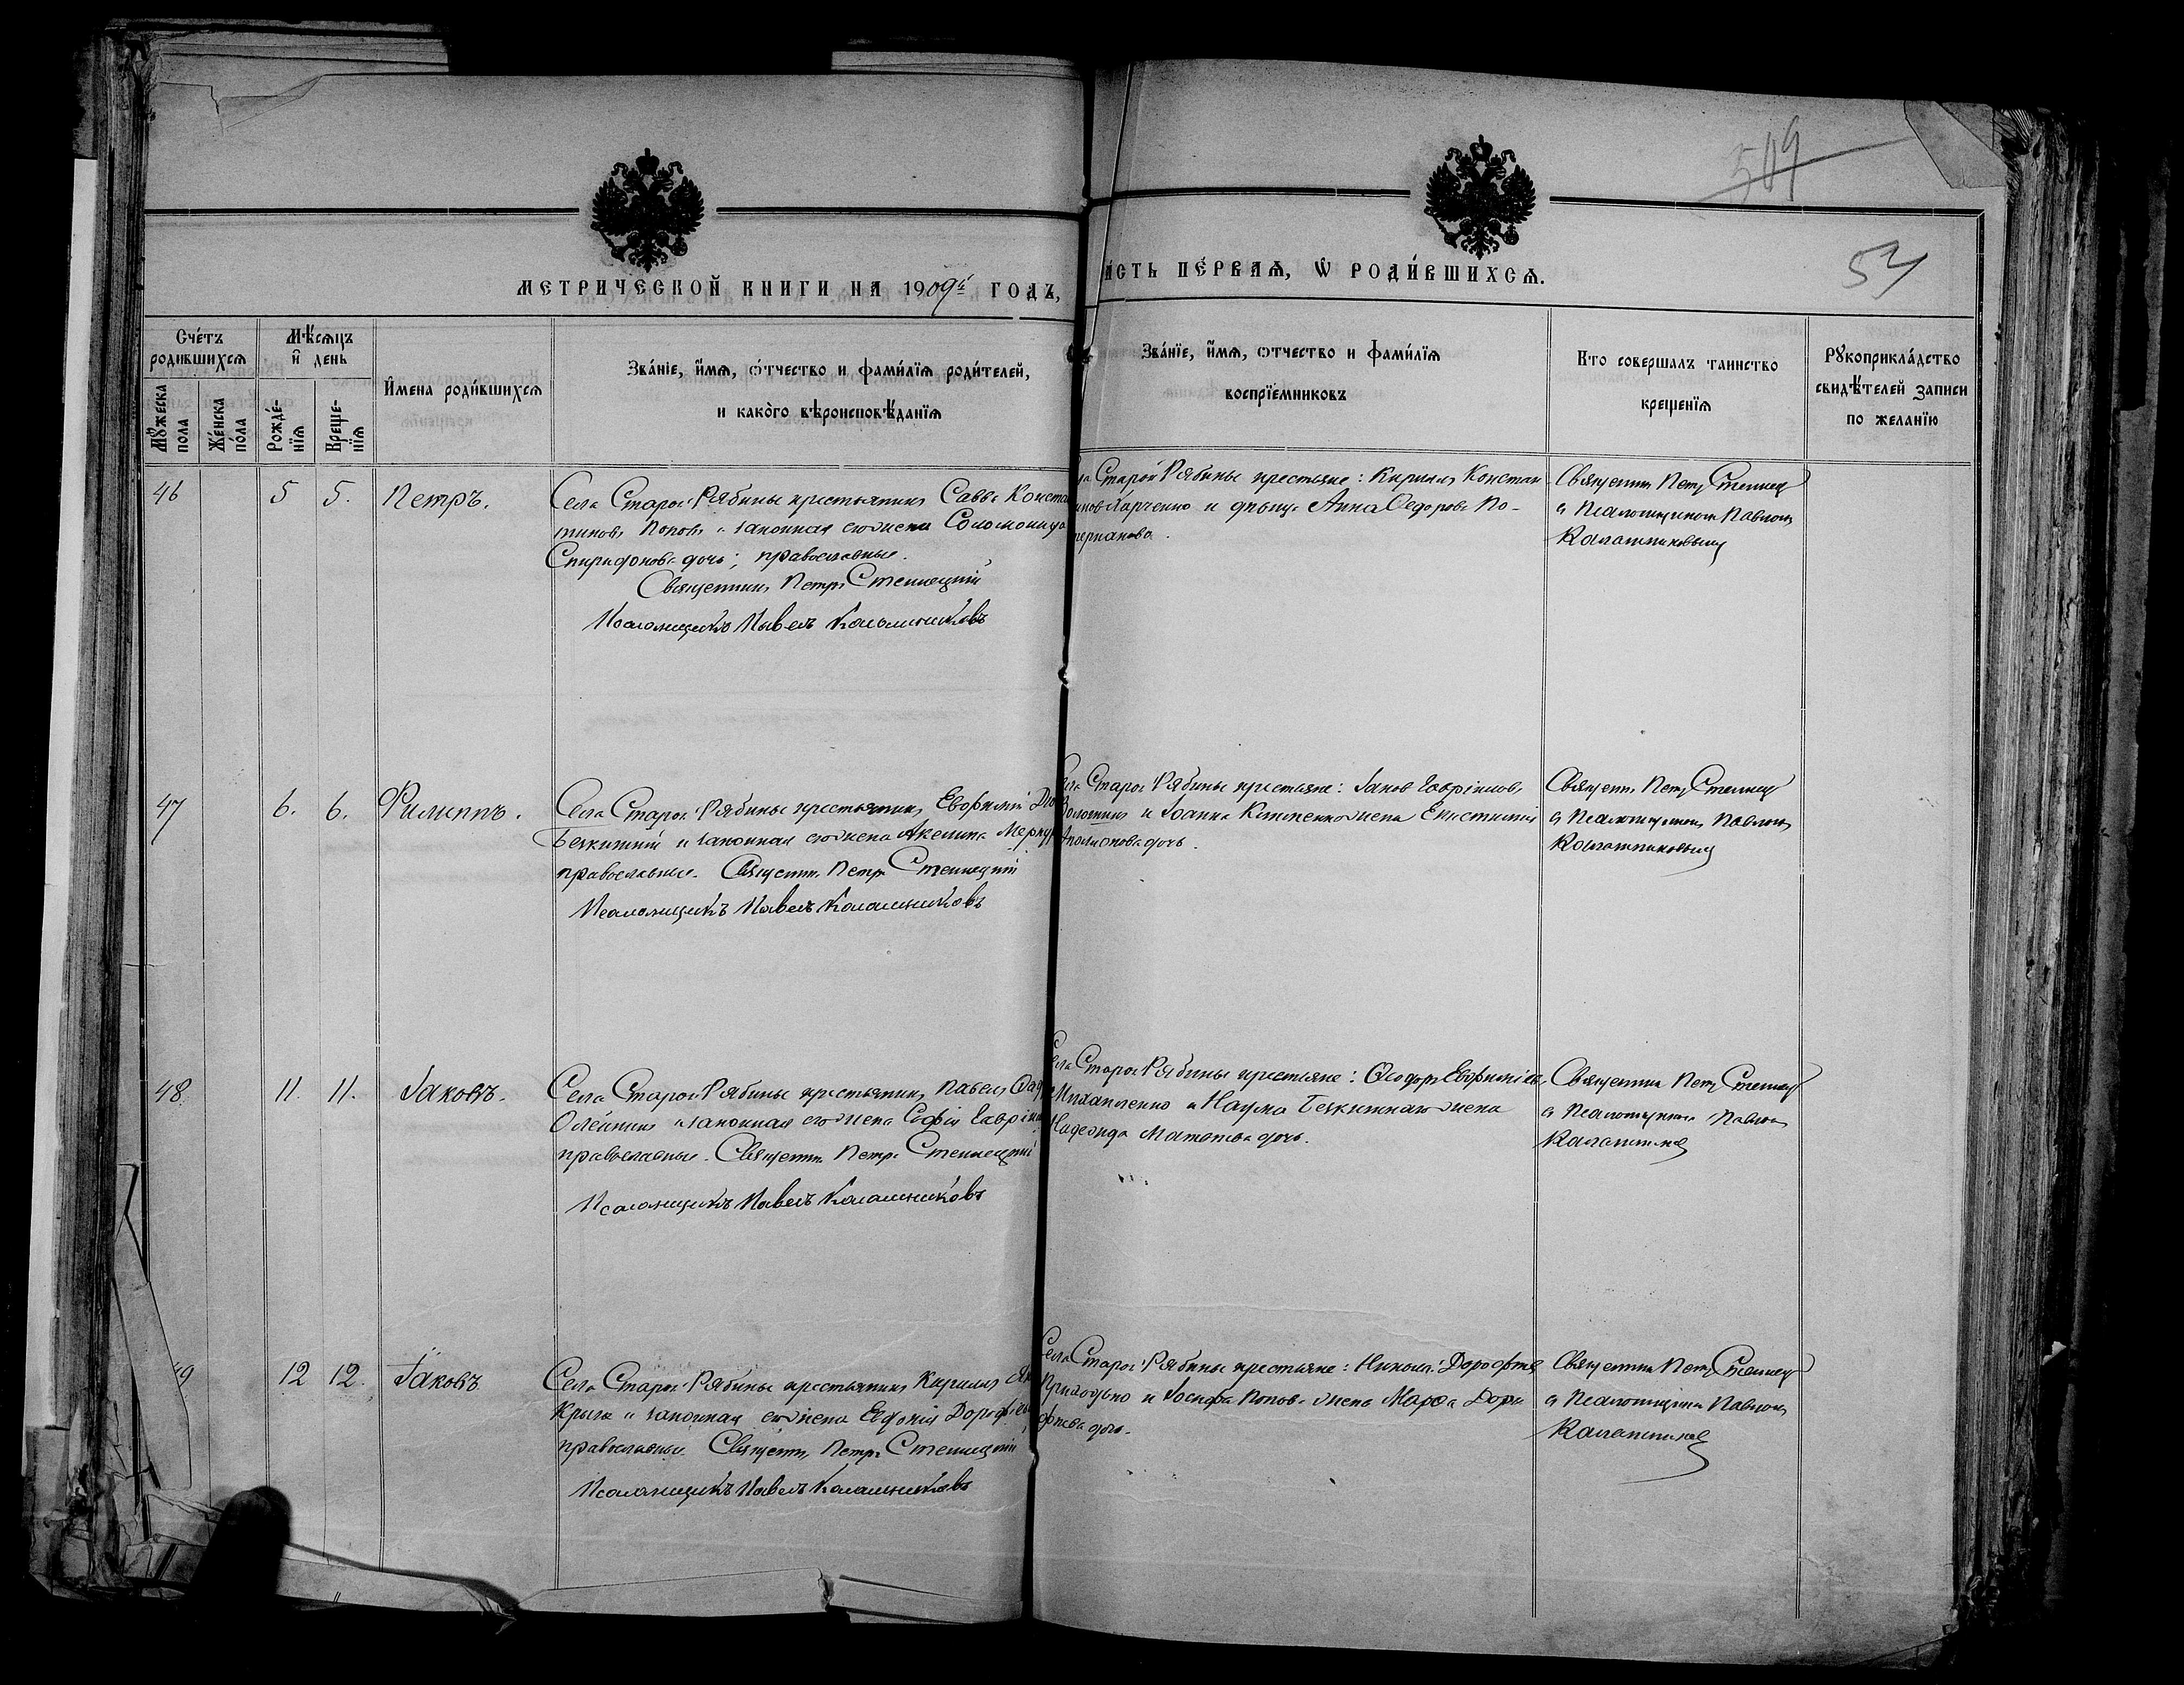 509
53
МЕТРИЧЕСКОЙ КНИГИ НА 1909й ГОДЪ,
ІСТЬ ПЕ́РВАѦ, Ѡ҆ РОДИ́ВШИХСѦ.
Сче́тъ родившихсѧ
Мѣ́сѧцъ и҆ день
Мꙋ́жеска пола
Же́нска по́ла
Рожде́-нїѧ
Креще-нїѧ
И҆мена роди́вшихсѧ
Зва́нїе, и҆́мѧ, ѻ҆́тчество и фами́лїѧ роди́телей,
и како́го вѣроисповѣ́данїѧ
Зва́нїе, и҆́мѧ, ѻтчество и фами́лїѧ
воспрїе́мниковъ
Кто совершалъ таинство
крещенїѧ
Рꙋкоприкла́дство
свидѣ́телей записи
по желанїю
46
5
5.
Петръ.
Села Старой Рябины крестьянинъ Савва Конста
тиновъ Поповъ и законная его жена Соломонида
Спиридонова дочь; православные.
Священникъ Петръ Стеллецкій
Псаломщикъ Павелъ Калашниковъ
Старой Рябины крестьяне: Кириллъ Констан
Харченко и дѣвица Анна Ѳедорова По-
Священникъ Петръ Стеллец
съ Псаломщикомъ Павломъ
Калашниковымъ
47
6.
6.
Филиппъ.
Села Старой Рябины крестьянинъ Евфимій
и законная его жена Акелина Мерку
православные. Священ. Петръ Стеллецкій
Псаломщикъ Павелъ Калашниковъ
Старой Рябины крестьяне: Іаковъ Гавріиловъ
Золотник и Іоанна жена Епистимія
дочь.
Священ. Петръ Стеллец
съ Псаломщикомъ Павломъ
Калашниковымъ
48.
11.
11.
Іаковъ.
Села Старой Рябины крестьянинъ Павелъ
Олейникъ и законная его жена Софія Гавріи
православные. Священ. Петръ Стеллецкій
Псаломщикъ Павелъ Калашниковъ
Села Старой Рябины крестьяне: Ѳеодоръ Евфиміевъ
Михайленко и Наума жена
Надежда дочь.
Священникъ Петръ Стеллец
съ Псаломщикомъ Павломъ
Калашников
49
12
12.
Іаковъ
Села Старой Рябины крестьянинъ Кириллъ
Крыга и законная его жена Евдокія Дорофѣев
православные. Священ. Петръ Стеллецкій
Псаломщикъ Павелъ Калашниковъ
Села Старой Рябины крестьяне: Николай Дорофѣев
Приходько и Іосифа Попова жена Марѳа Доро
фѣева дочь.
Священникъ Петръ Стеллец
съ Псаломщикомъ Павломъ
Калашников